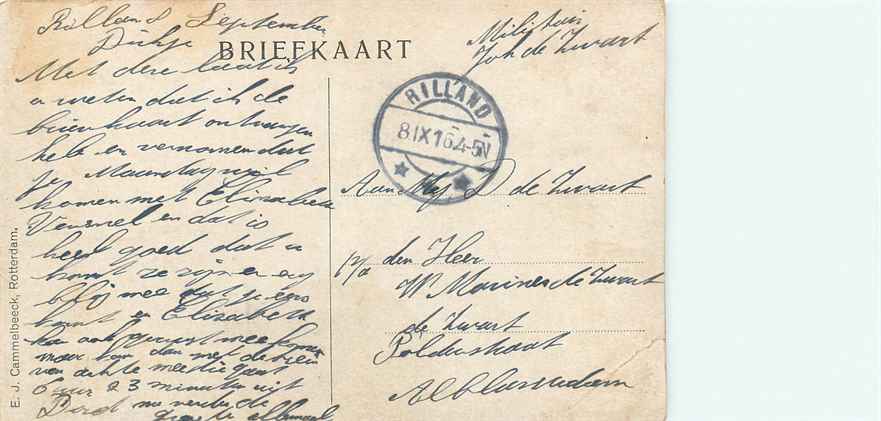 Rilland 8 September
BRIEFKAART
Met deze laat ik
u weten dat ik de
briefkaart ontvangen
heb en vernomen dat
je Maandag wil
komen met Elizabeth
en dat is
heel goed dat u
komt ze zijn er erg
blij mee dat je eens
komt en Elizabeth
kan ook gerust mee komen
maar kom dan met de trein
van achte me die gaat
6 uur 23 minuten uit
Dord nu verder de
groete allemaal
Militair
Joh de Zwart
RILLAND
8.IX.16.4-5N
Aan Mej D de Zwart
p/a den Heer
W Marinus de Zwart
de Zwart
Polderstraat
Alblasserdam
E. J. Cammelbeeck, Rotterdam.